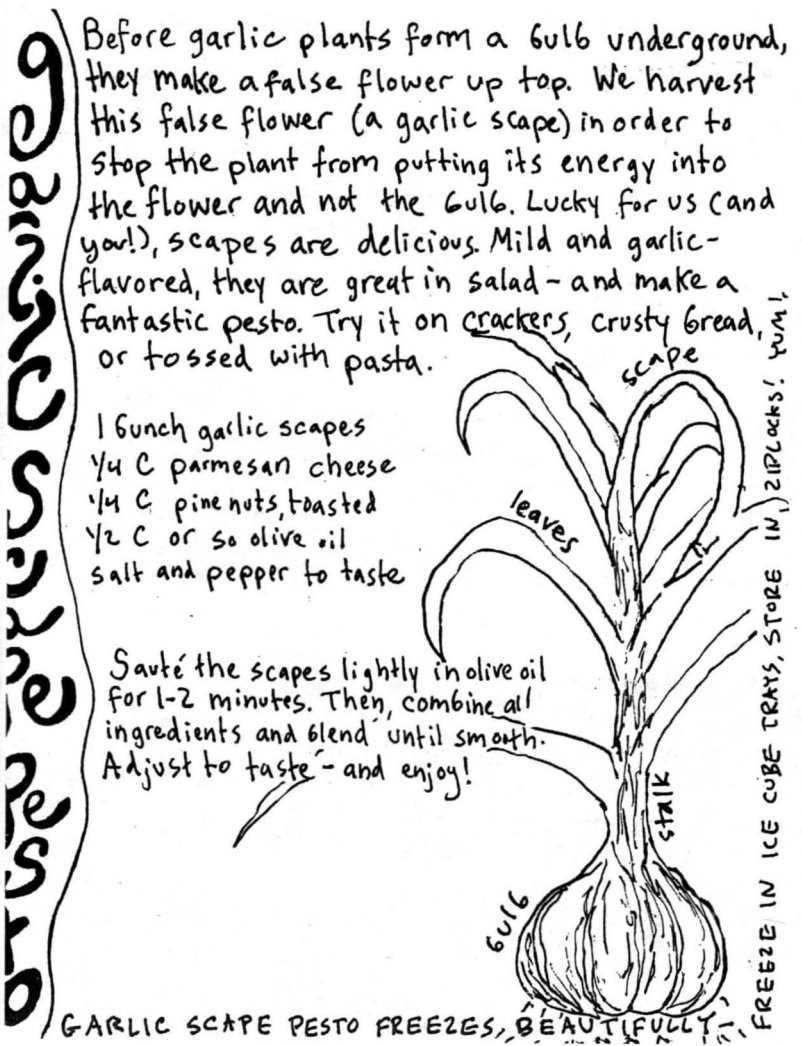 garlic scape pesto
Before garlic plants form a bulb underground,
they make a false flower up top. We harvest
this false flower (a garlic scape) in order to
stop the plant from putting its energy into
the flower and not the bulb. Lucky for us (and
you!), scapes are delicious. Mild and garlic-
flavored, they are great in salad - and make a
fantastic pesto. Try it on crackers, crusty bread,
or tossed with pasta.
1 bunch garlic scapes
1/4 C parmesan cheese
1/4 C pine nuts, toasted
1/2 C or so olive oil
salt and pepper to taste
Sauté the scapes lightly in olive oil
for 1-2 minutes. Then, combine all
ingredients and blend until smooth.
Adjust to taste - and enjoy!
scape
leaves
stalk
bulb
GARLIC SCAPE PESTO FREEZES BEAUTIFULLY -
FREEZE IN ICE CUBE TRAYS, STORE IN ZIPLOCKS! YUM!